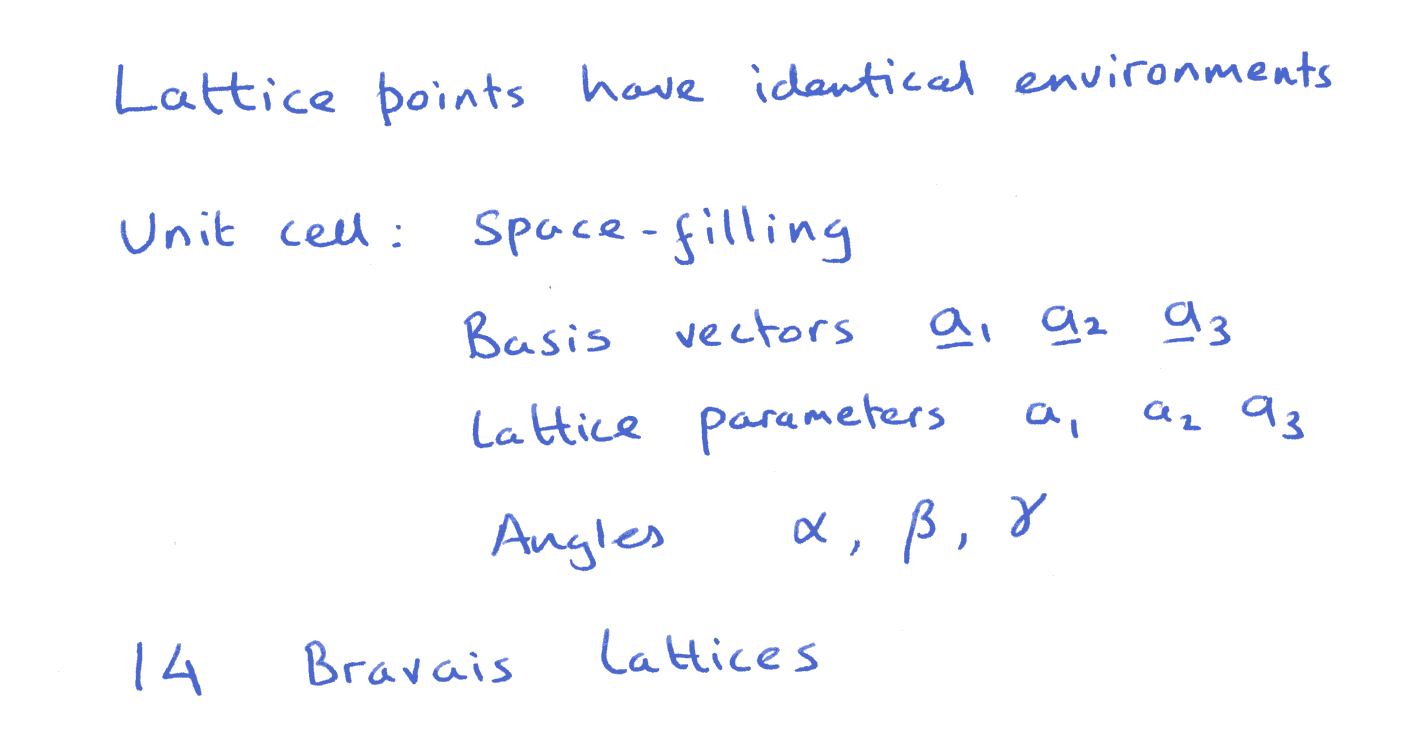 Lattice points have identical environments
Unit cell: Space-filling
Basis vectors a̲₁ a̲₂ a̲₃
Lattice parameters a₁ a₂ a₃
Angles α, β, γ
14 Bravais Lattices